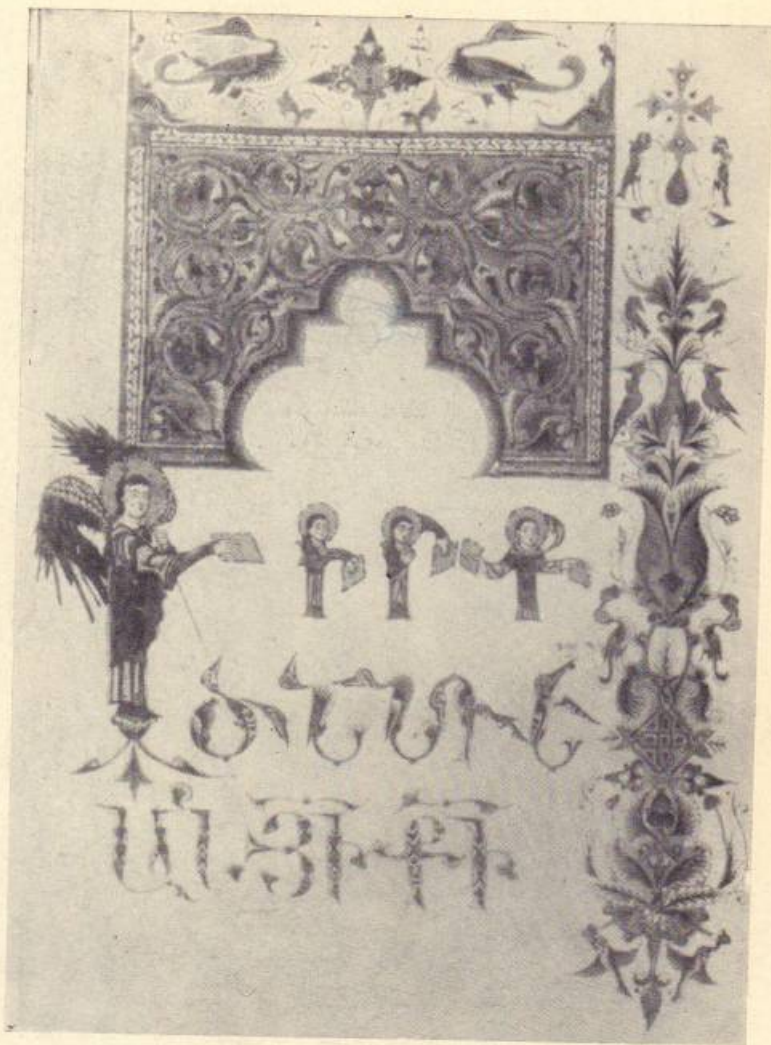 Գիրք
ծննդե
ան յի քի